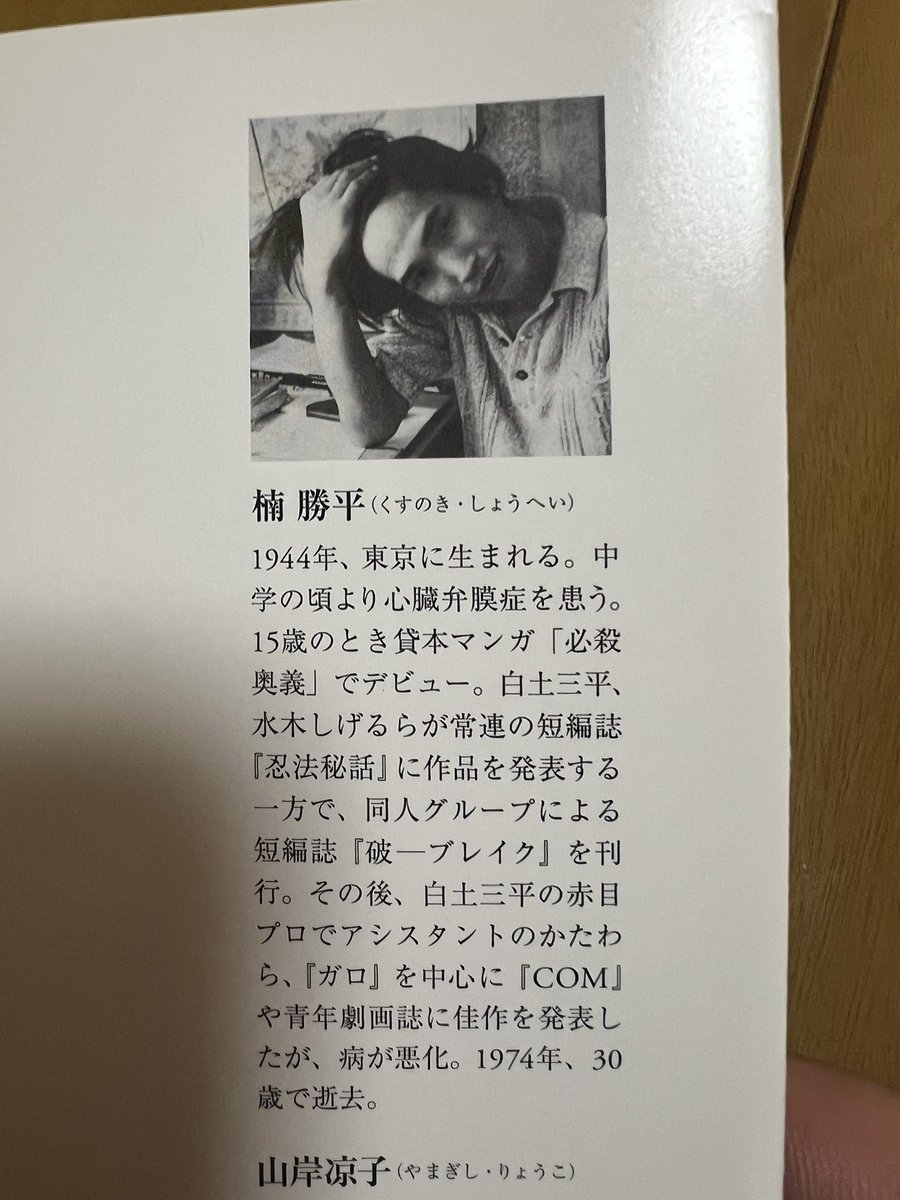 楠 勝平(くすのき・しょうへい)
1944年、東京に生まれる。中
学の頃より心臓弁膜症を患う。
15歳のとき貸本マンガ「必殺
奥義」でデビュー。白土三平、
水木しげるらが常連の短編誌
『忍法秘話』に作品を発表する
一方で、同人グループによる
短編誌『破―ブレイク』を刊
行。その後、白土三平の赤目
プロでアシスタントのかたわ
ら、『ガロ』を中心に『COM』
や青年劇画誌に佳作を発表し
たが、病が悪化。1974年、30
歳で逝去。
山岸凉子(やまぎし・りょうこ)